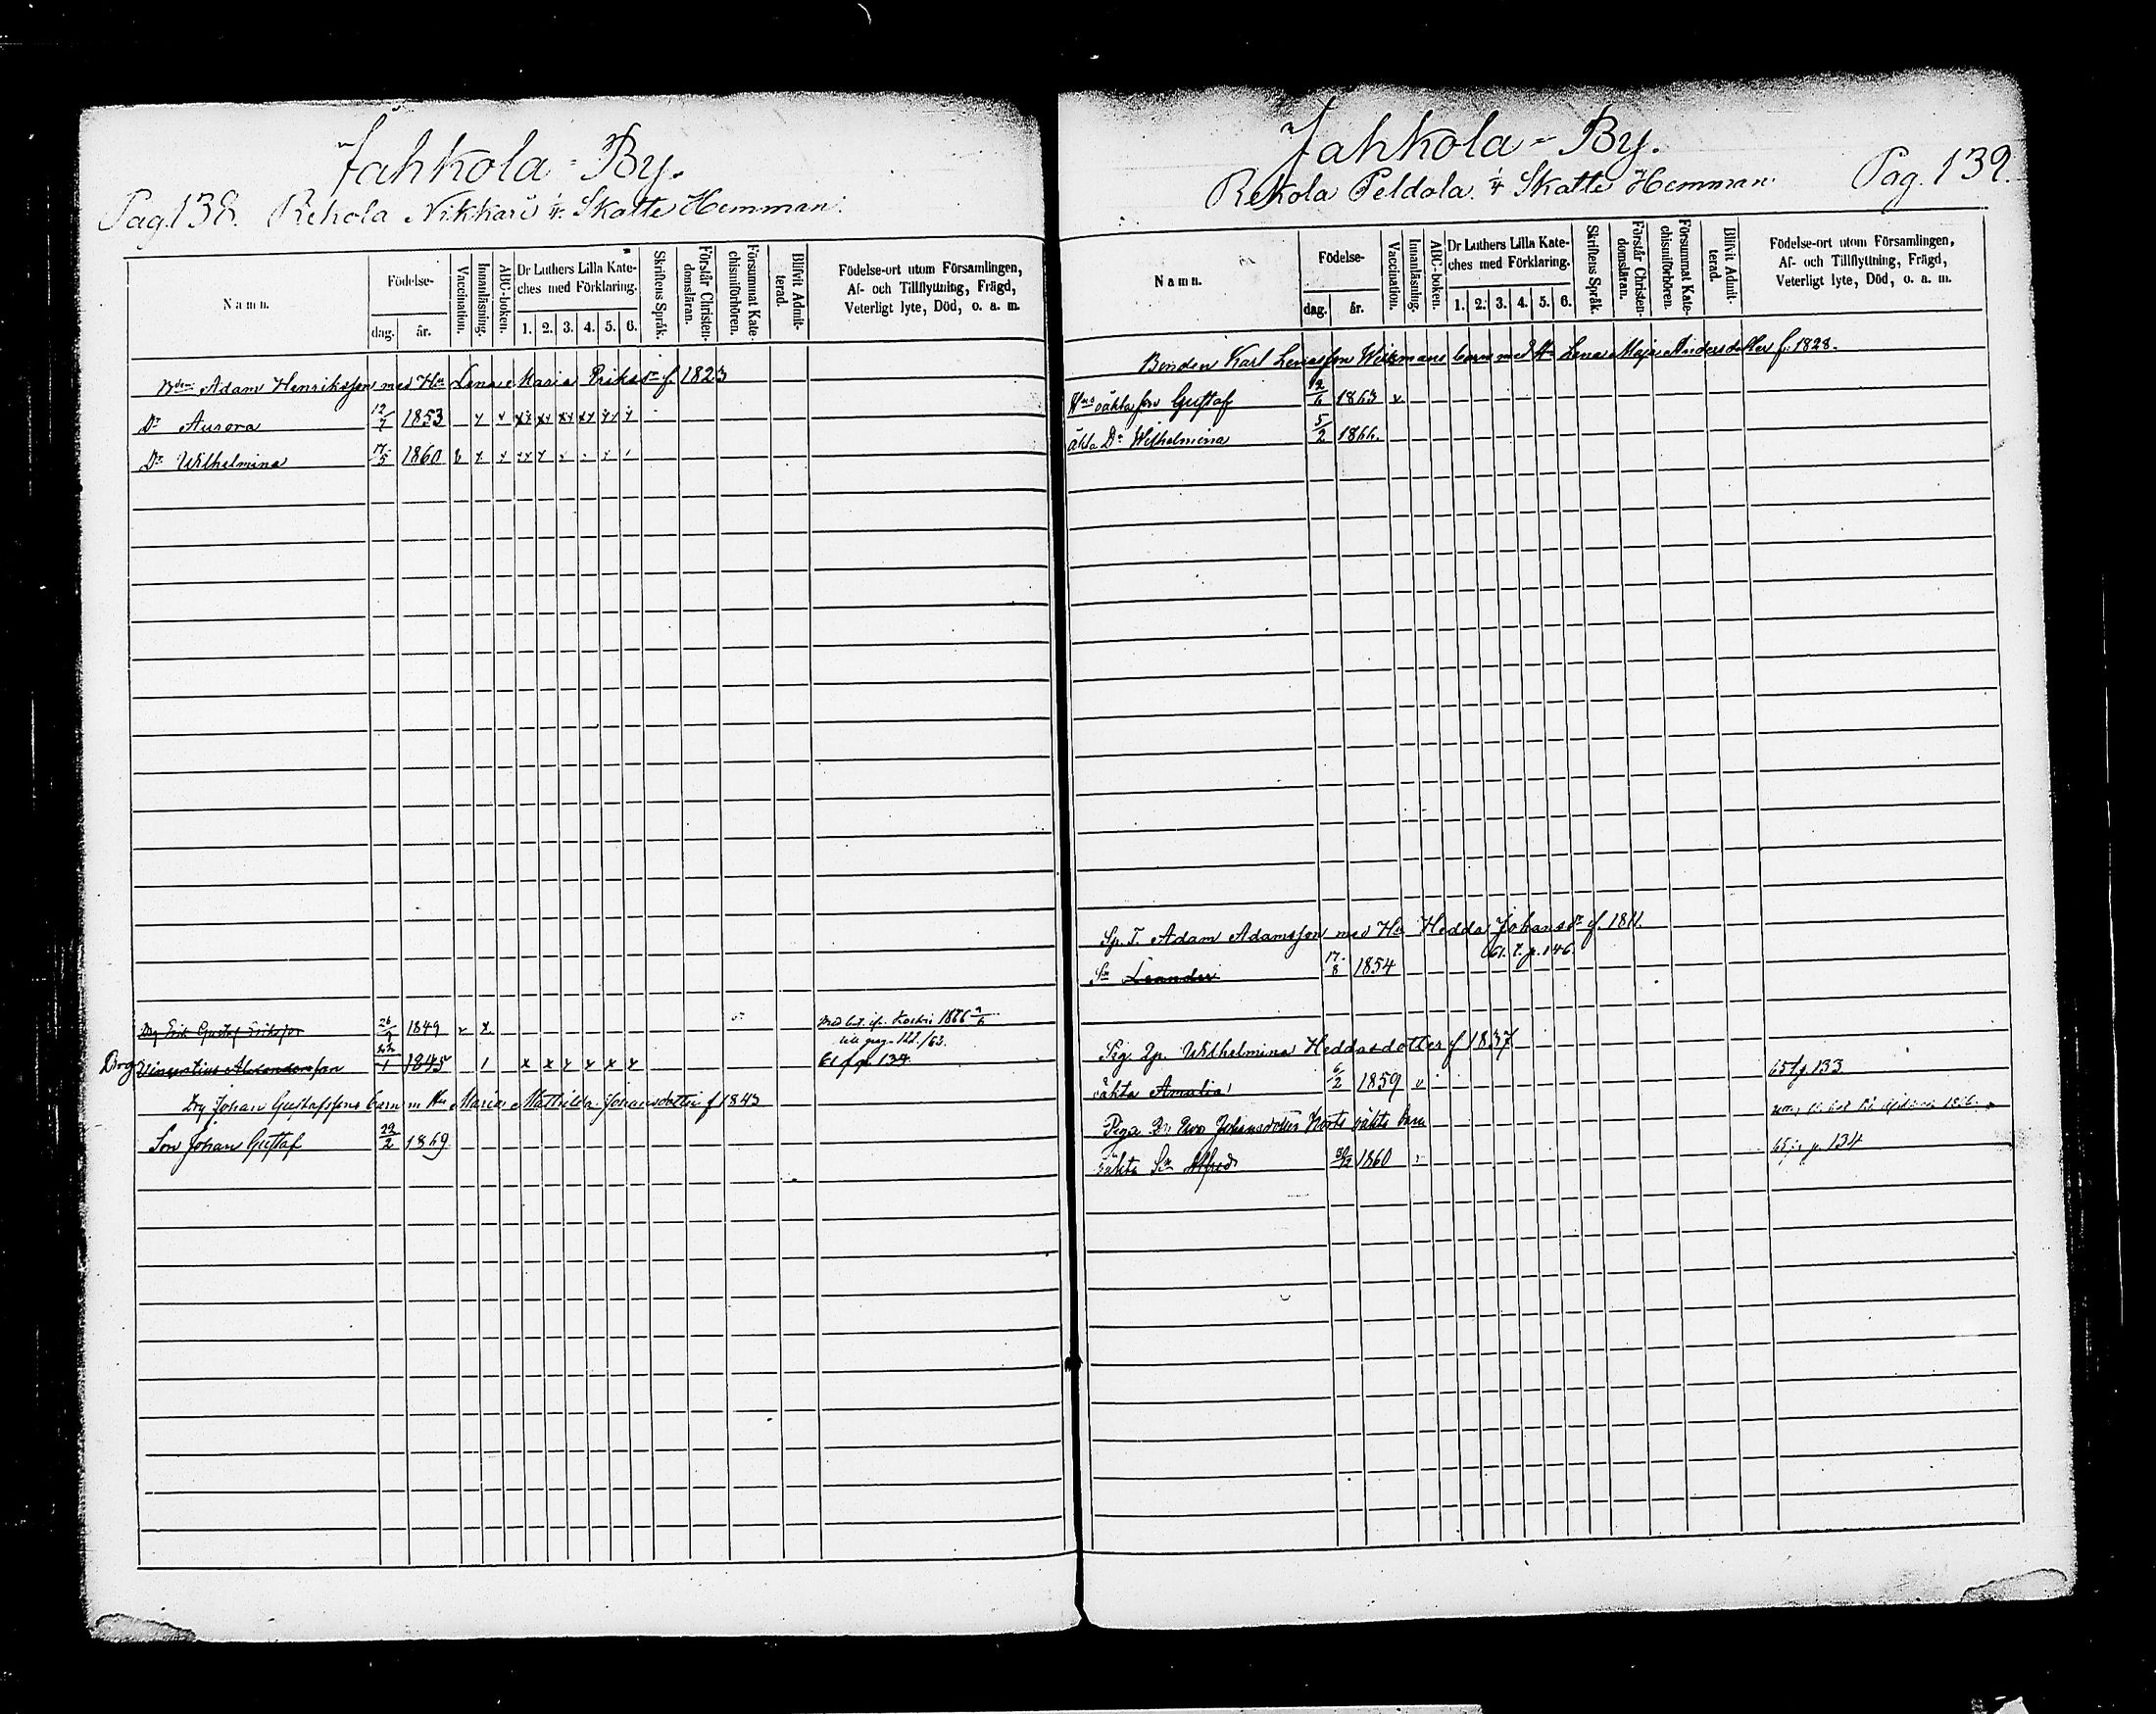 Jahkola-By.
Pag. 138. Rekola Nikkari 1/4 Skatte Hemman.
Namn.
Födelse-
dag.
år.
Vaccination.
Innanläsning.
ABC-boken.
Dr Luthers Lilla Kate-
ches med Förklaring.
1. 2. 3. 4. 5. 6.
Skriftens Språk.
Förstår Christen-
domsläran.
Försummat Kate-
chismiförhören.
Blifvit Admit-
terad.
Födelse-ort utom Församlingen,
Af- och Tillflyttning, Frägd,
Veterligt lyte, Död, o. a. m.
Adam Henriksson med Hu Lena Maria Eriksdr f. 1823
Dr Aurora 12/7 1853
Dr Wilhelmina 17/5 1860
Drg Erik Gustaf Eriksson 26/9 1849 Med bet. ifr. Koskis 1866
Drg Vincentius Alexandersson 22/1 1845 61 f. p. 139
Drg Johan Gustafssons barn m Hu Maria Mathilda Johansdotter f 1843
Son Johan Gustaf 22/2 1869
Jahkola-By.
Rekola Peldola. 1/4 Skatte Hemman. Pag. 139.
Namn.
Födelse-
dag.
år.
Vaccination.
Innanläsning.
ABC-boken.
Dr Luthers Lilla Kate-
ches med Förklaring.
1. 2. 3. 4. 5. 6.
Skriftens Språk.
Förstår Christen-
domsläran.
Försummat Kate-
chismiförhören.
Blifvit Admit-
terad.
Födelse-ort utom Församlingen,
Af- och Tillflyttning, Frägd,
Veterligt lyte, Död, o. a. m.
Bonden Karl Wikmans barn med Hu Lena Maja Andersdotter f. 1828.
Hus oäkta son Gustaf 12/6 1863
äkta Dr Wilhelmina 5/2 1866.
Sp. T. Adam Adamsson med Hu Hedda Johansdr f. 1811.
Sn Leander 17/8 1854 61. t. p. 146.
Pig. Wilhelmina Heddasdotter f 1837
oäkta Amalia 6/2 1859 65 f. p. 133
Piga Eva Johansdotter oäkta barn
oäkta Sn Alfred 1860 65 p. 134